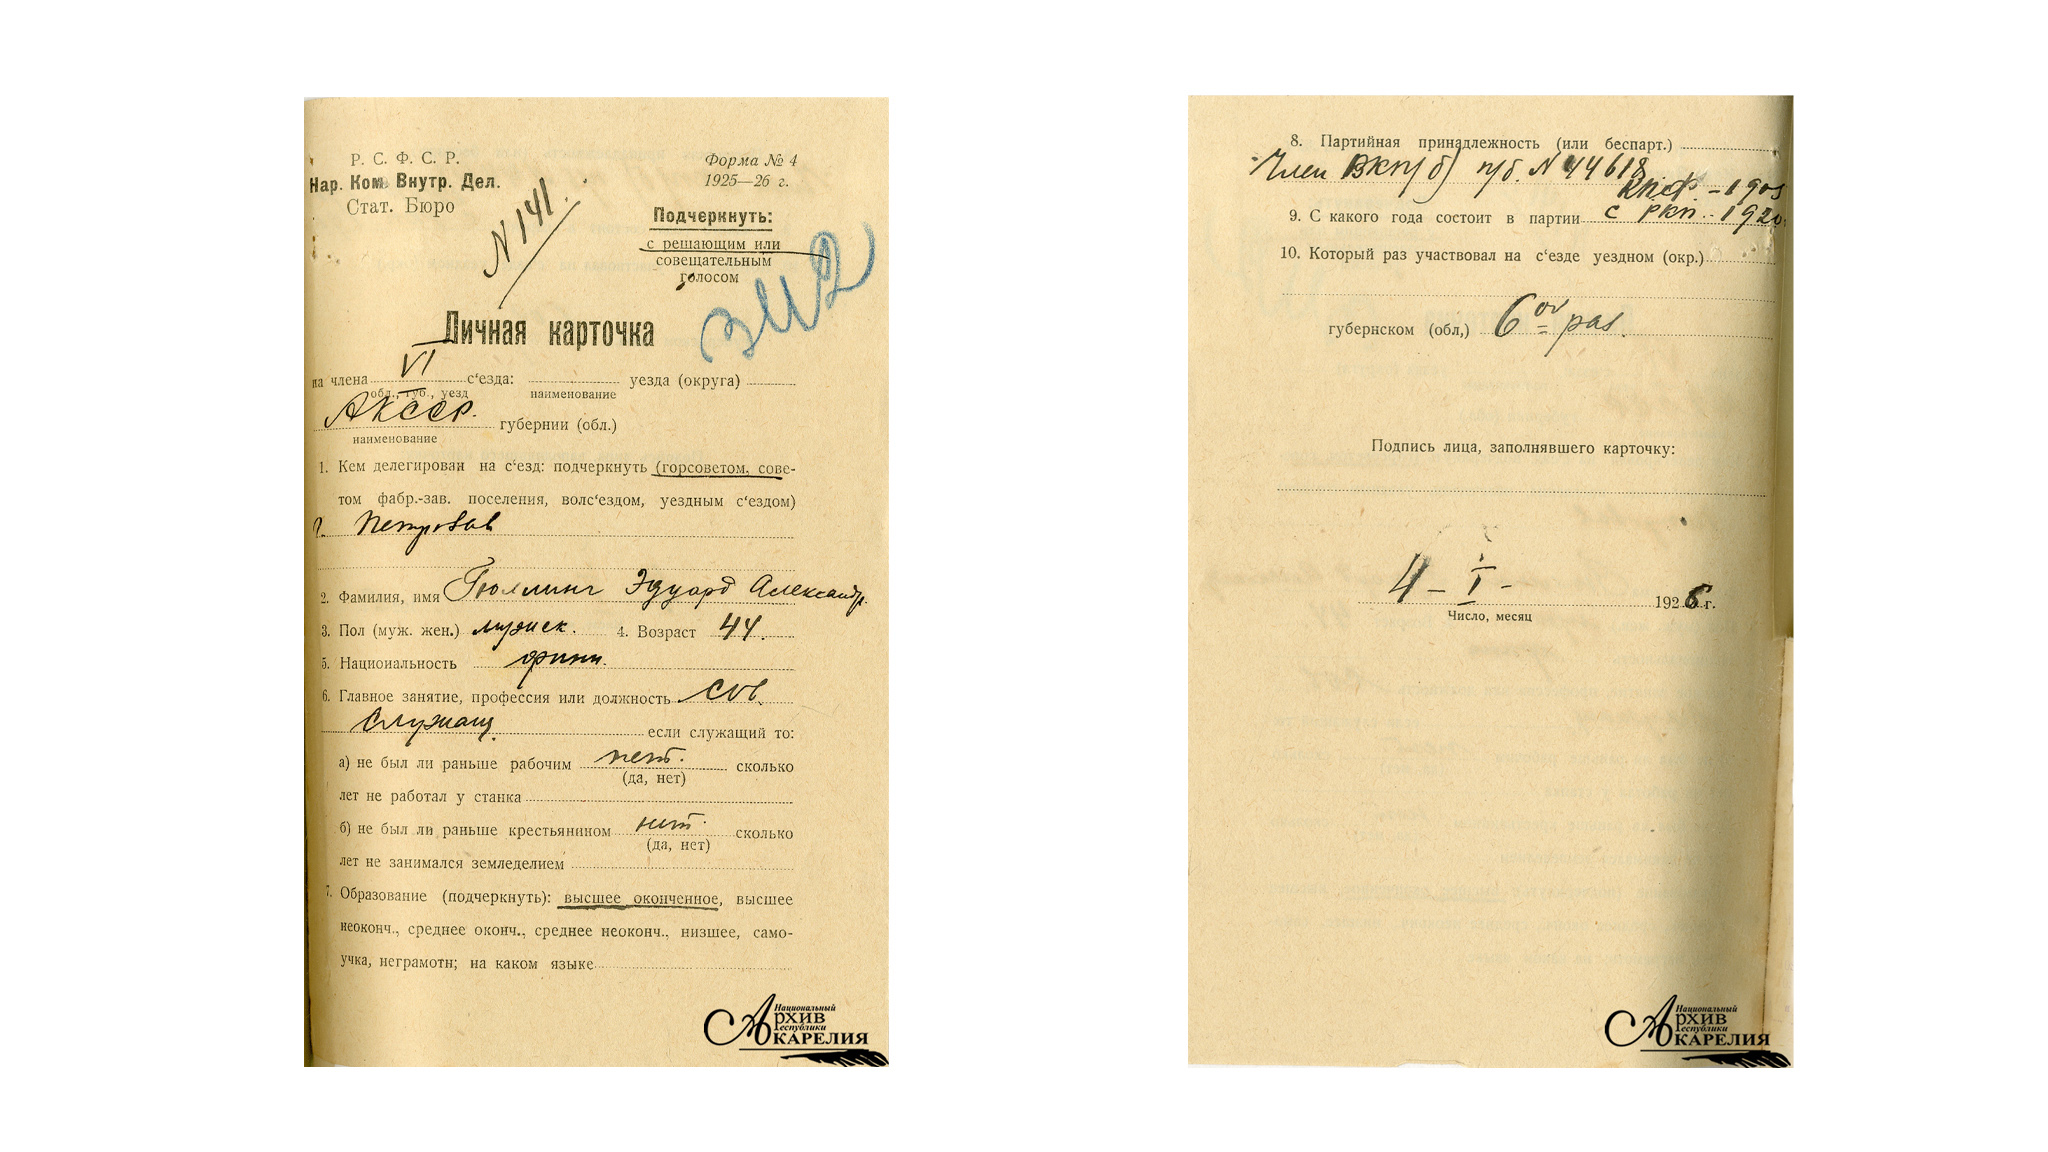 Р. С. Ф. С. Р.
Нар. Ком. Внутр. Дел.
Стат. Бюро
Форма № 4
1925—26 г.
N 141.
Подчеркнуть:
с решающим или
совещательным
голосом
Личная карточка
на члена VI с‘езда: уезда (округа)
обл., губ., уезд наименование
АКССР. губернии (обл.)
наименование
1. Кем делегирован на с‘езд: подчеркнуть (горсоветом, сове-
том фабр.-зав. поселения, волс‘ездом, уездным с‘ездом)
г. Петрозав
2. Фамилия, имя Гюллинг Эдуард Александр.
3. Пол (муж. жен.) мужск. 4. Возраст 44.
5. Национальность финн.
6. Главное занятие, профессия или должность сов.
служащ. если служащий то:
а) не был ли раньше рабочим нет. сколько
(да, нет)
лет не работал у станка
б) не был ли раньше крестьянином нет. сколько
(да, нет)
лет не занимался земледелием
7. Образование (подчеркнуть): высшее оконченное, высшее
неоконч., среднее оконч., среднее неоконч., низшее, само-
учка, неграмотн; на каком языке
Национальный
Архив
Республики
Карелия
8. Партийная принадлежность (или беспарт.)
Член ВКП(б) п/б. N 44618
КПФ - 1905
9. С какого года состоит в партии с РКП. - 1920
10. Который раз участвовал на с‘езде уездном (окр.)
губернском (обл,) 6ой раз.
Подпись лица, заполнявшего карточку:
4 - I - 1926 г.
Число, месяц
Национальный
Архив
Республики
Карелия